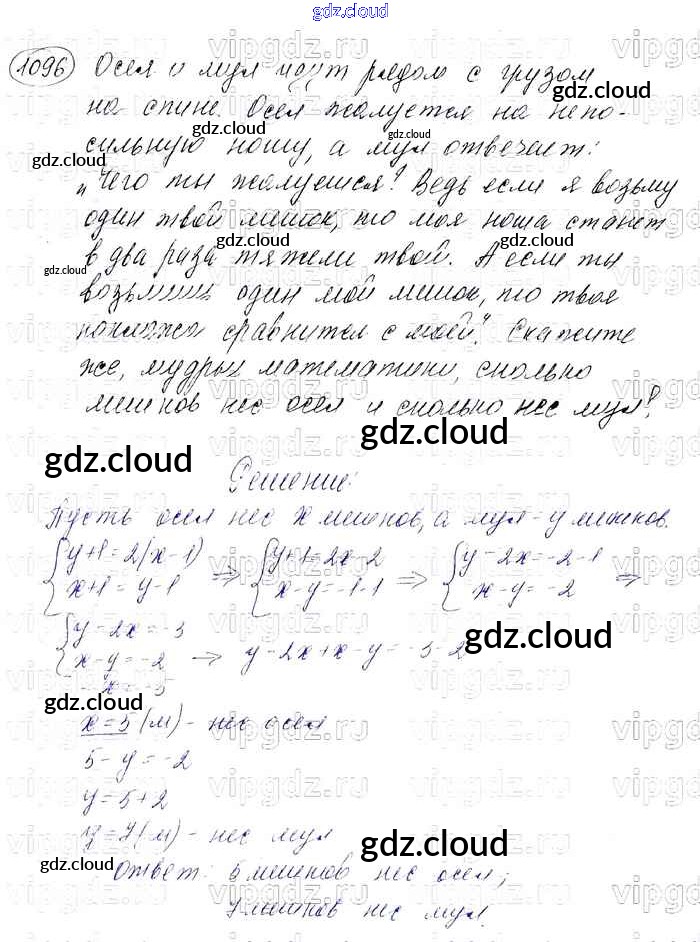 gdz.cloud
1096 Осел и мул идут рядом с грузом
на спине. Осел жалуется на непо-
сильную ношу, а мул отвечает:
„Чего ты жалуешься? Ведь если я возьму
один твой мешок, то моя ноша станет
в два раза тяжели твой. А если ты
возьмешь один мой мешок, то твоя
поклажа сравнится с моей“. Скажите
же, мудрые математики, сколько
мешков нес осел и сколько нес мул?
Решение:
Пусть осел нес x мешков, а мул - y мешков.
{y+1=2(x-1) => {y+1=2x-2 => {y-2x=-2-1 =>
{x+1=y-1 {x-y=-1-1 {x-y=-2
{y-2x=-3
{x-y=-2 -> y-2x+x-y=-3-2
-x=-5
x=5 (м) - нес осел
5-y=-2
y=5+2
y=7(м) - нес мул
Ответ: 5 мешков нес осел;
7 мешков нес мул.